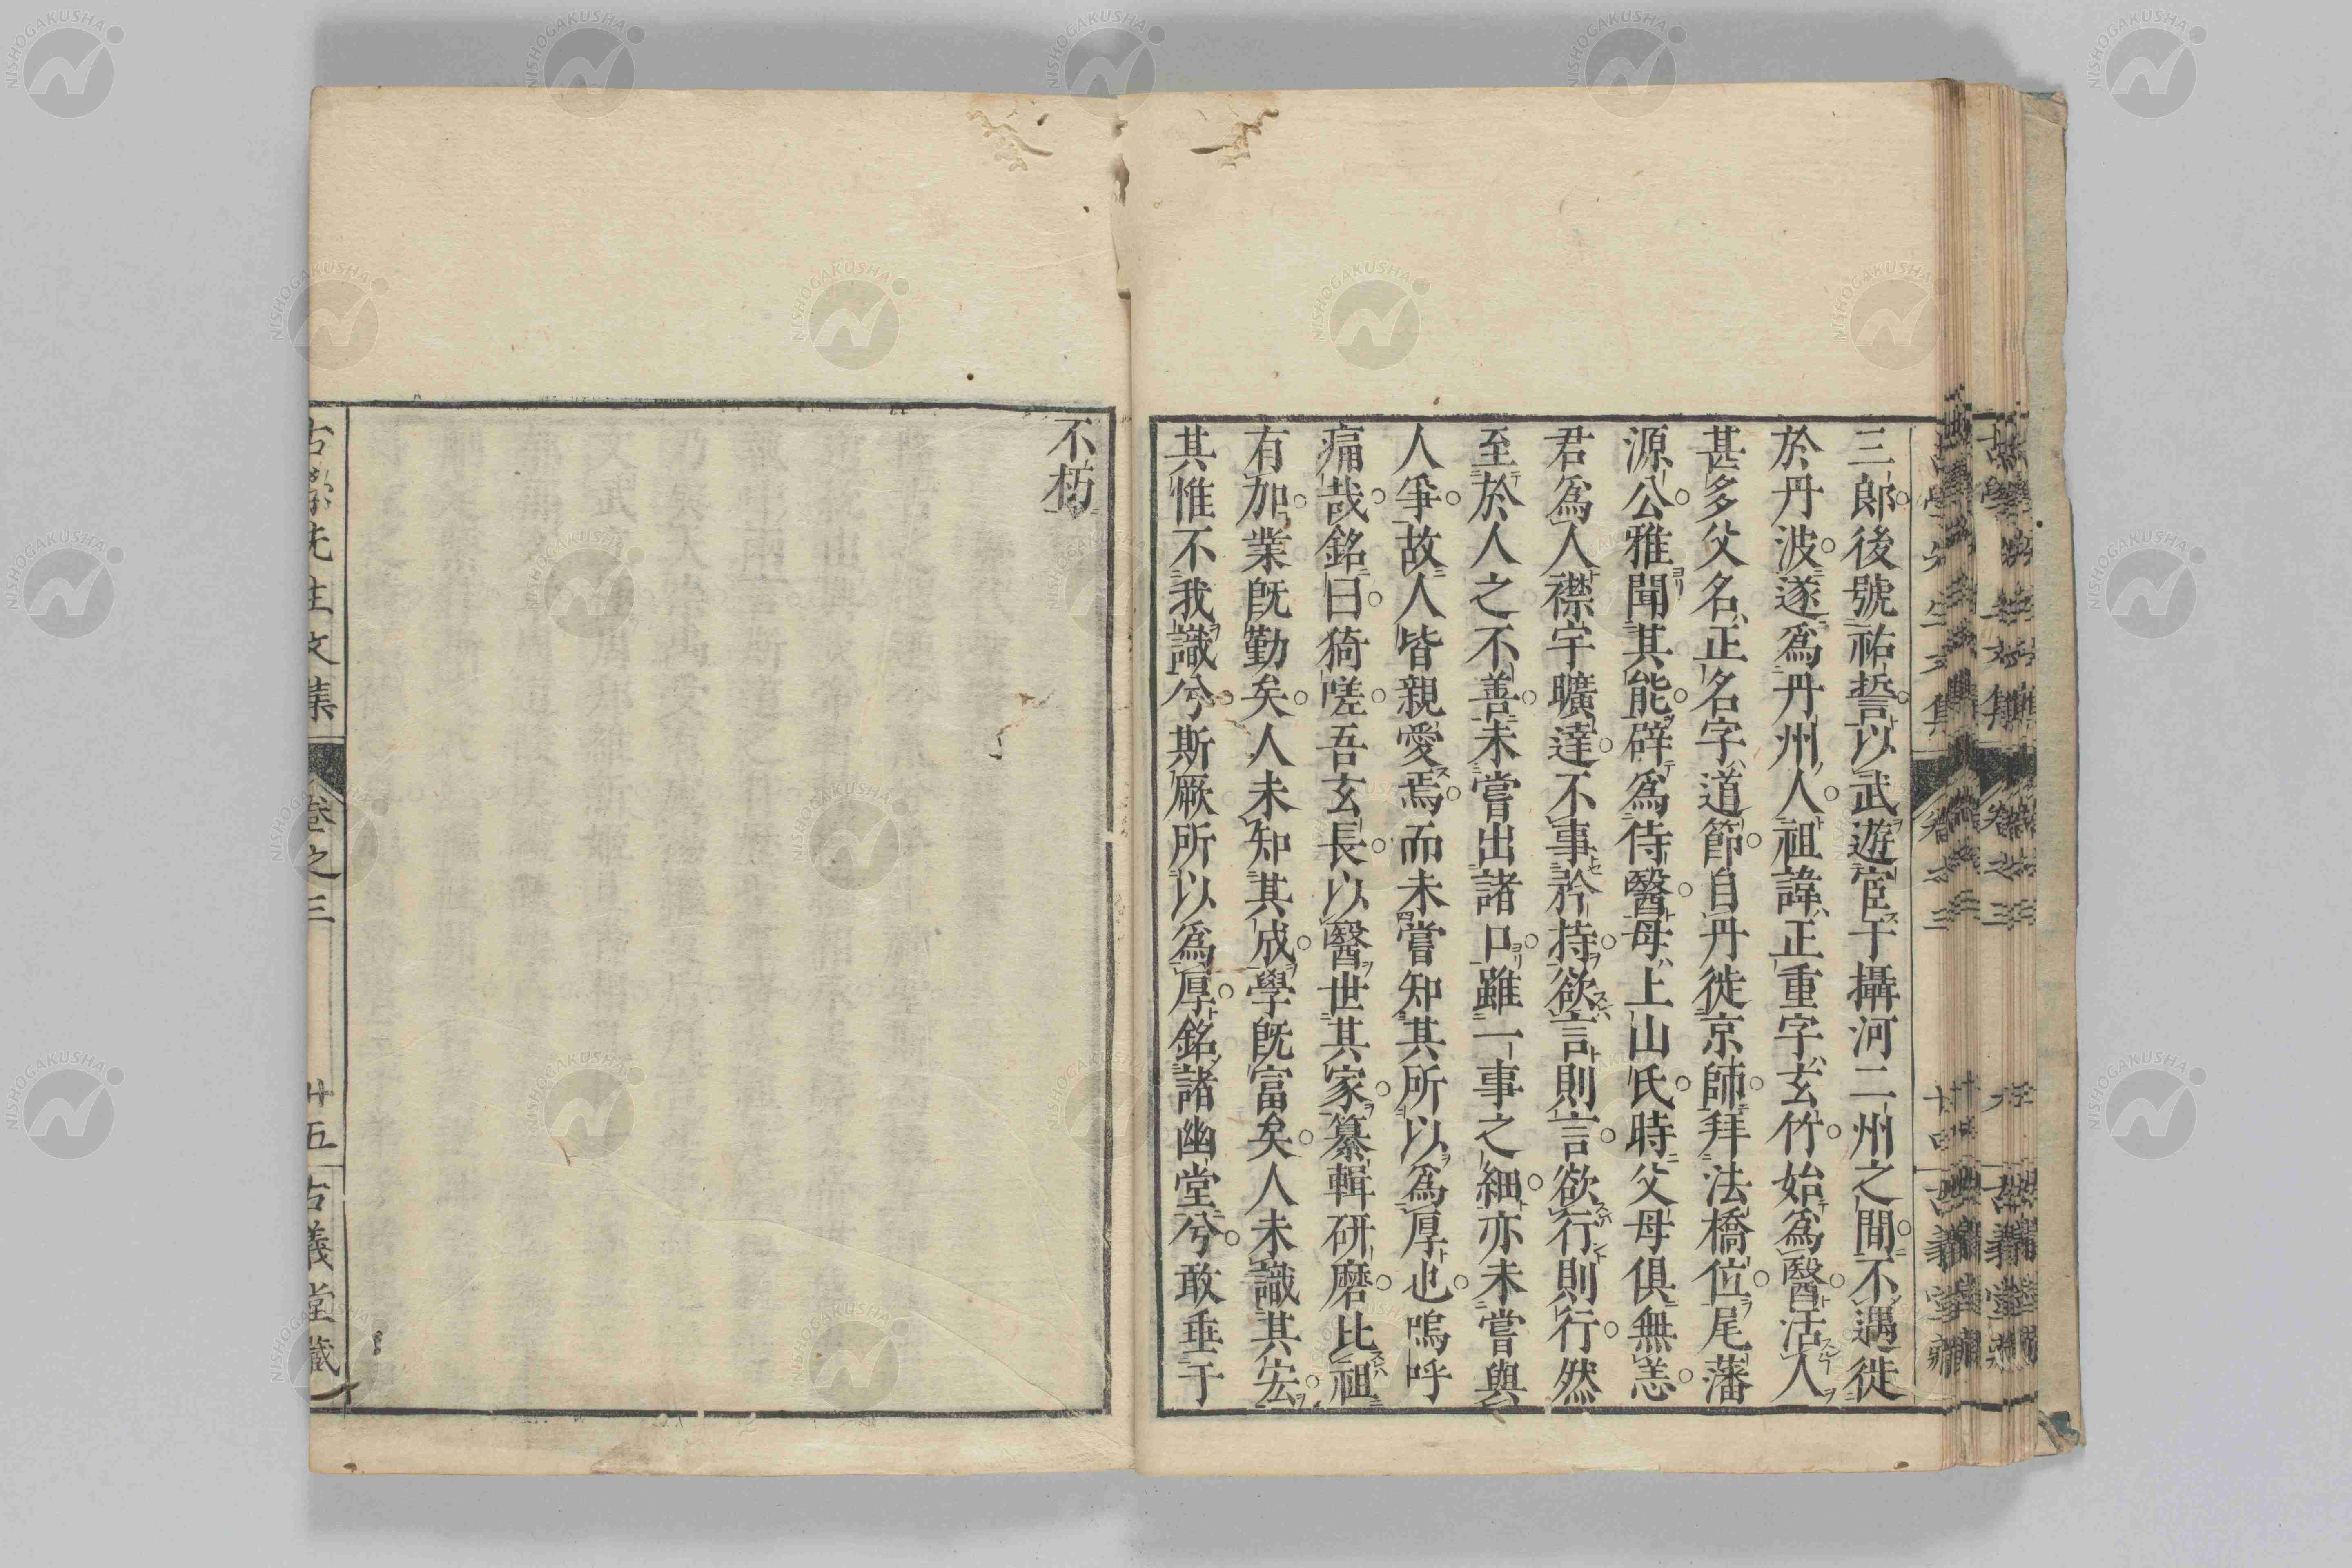 三郎後號祐誓以武遊宦于攝河二州之間不遇徙
於丹波遂爲丹州人祖諱正重字玄竹始爲醫活人
甚多父名正名字道節自丹徙京師拜法橋位尾藩
源公雅聞其能辟爲侍醫母上山氏時父母俱無恙
君爲人襟宇曠達不事矜持欲言則言欲行則行然
至於人之不善未嘗出諸口雖一事之細亦未嘗與
人爭故人皆親愛焉而未嘗知其所以爲厚也嗚呼
痛哉銘曰猗嗟吾玄長以醫世其家纂輯研磨比祖
有加業既勤矣人未知其成學既富矣人未識其宏
其惟不我識兮斯厥所以爲厚銘諸幽堂兮敢垂于
不朽
古學先生文集 卷之三 廿五 古義堂藏
NISHOGAKUSHA